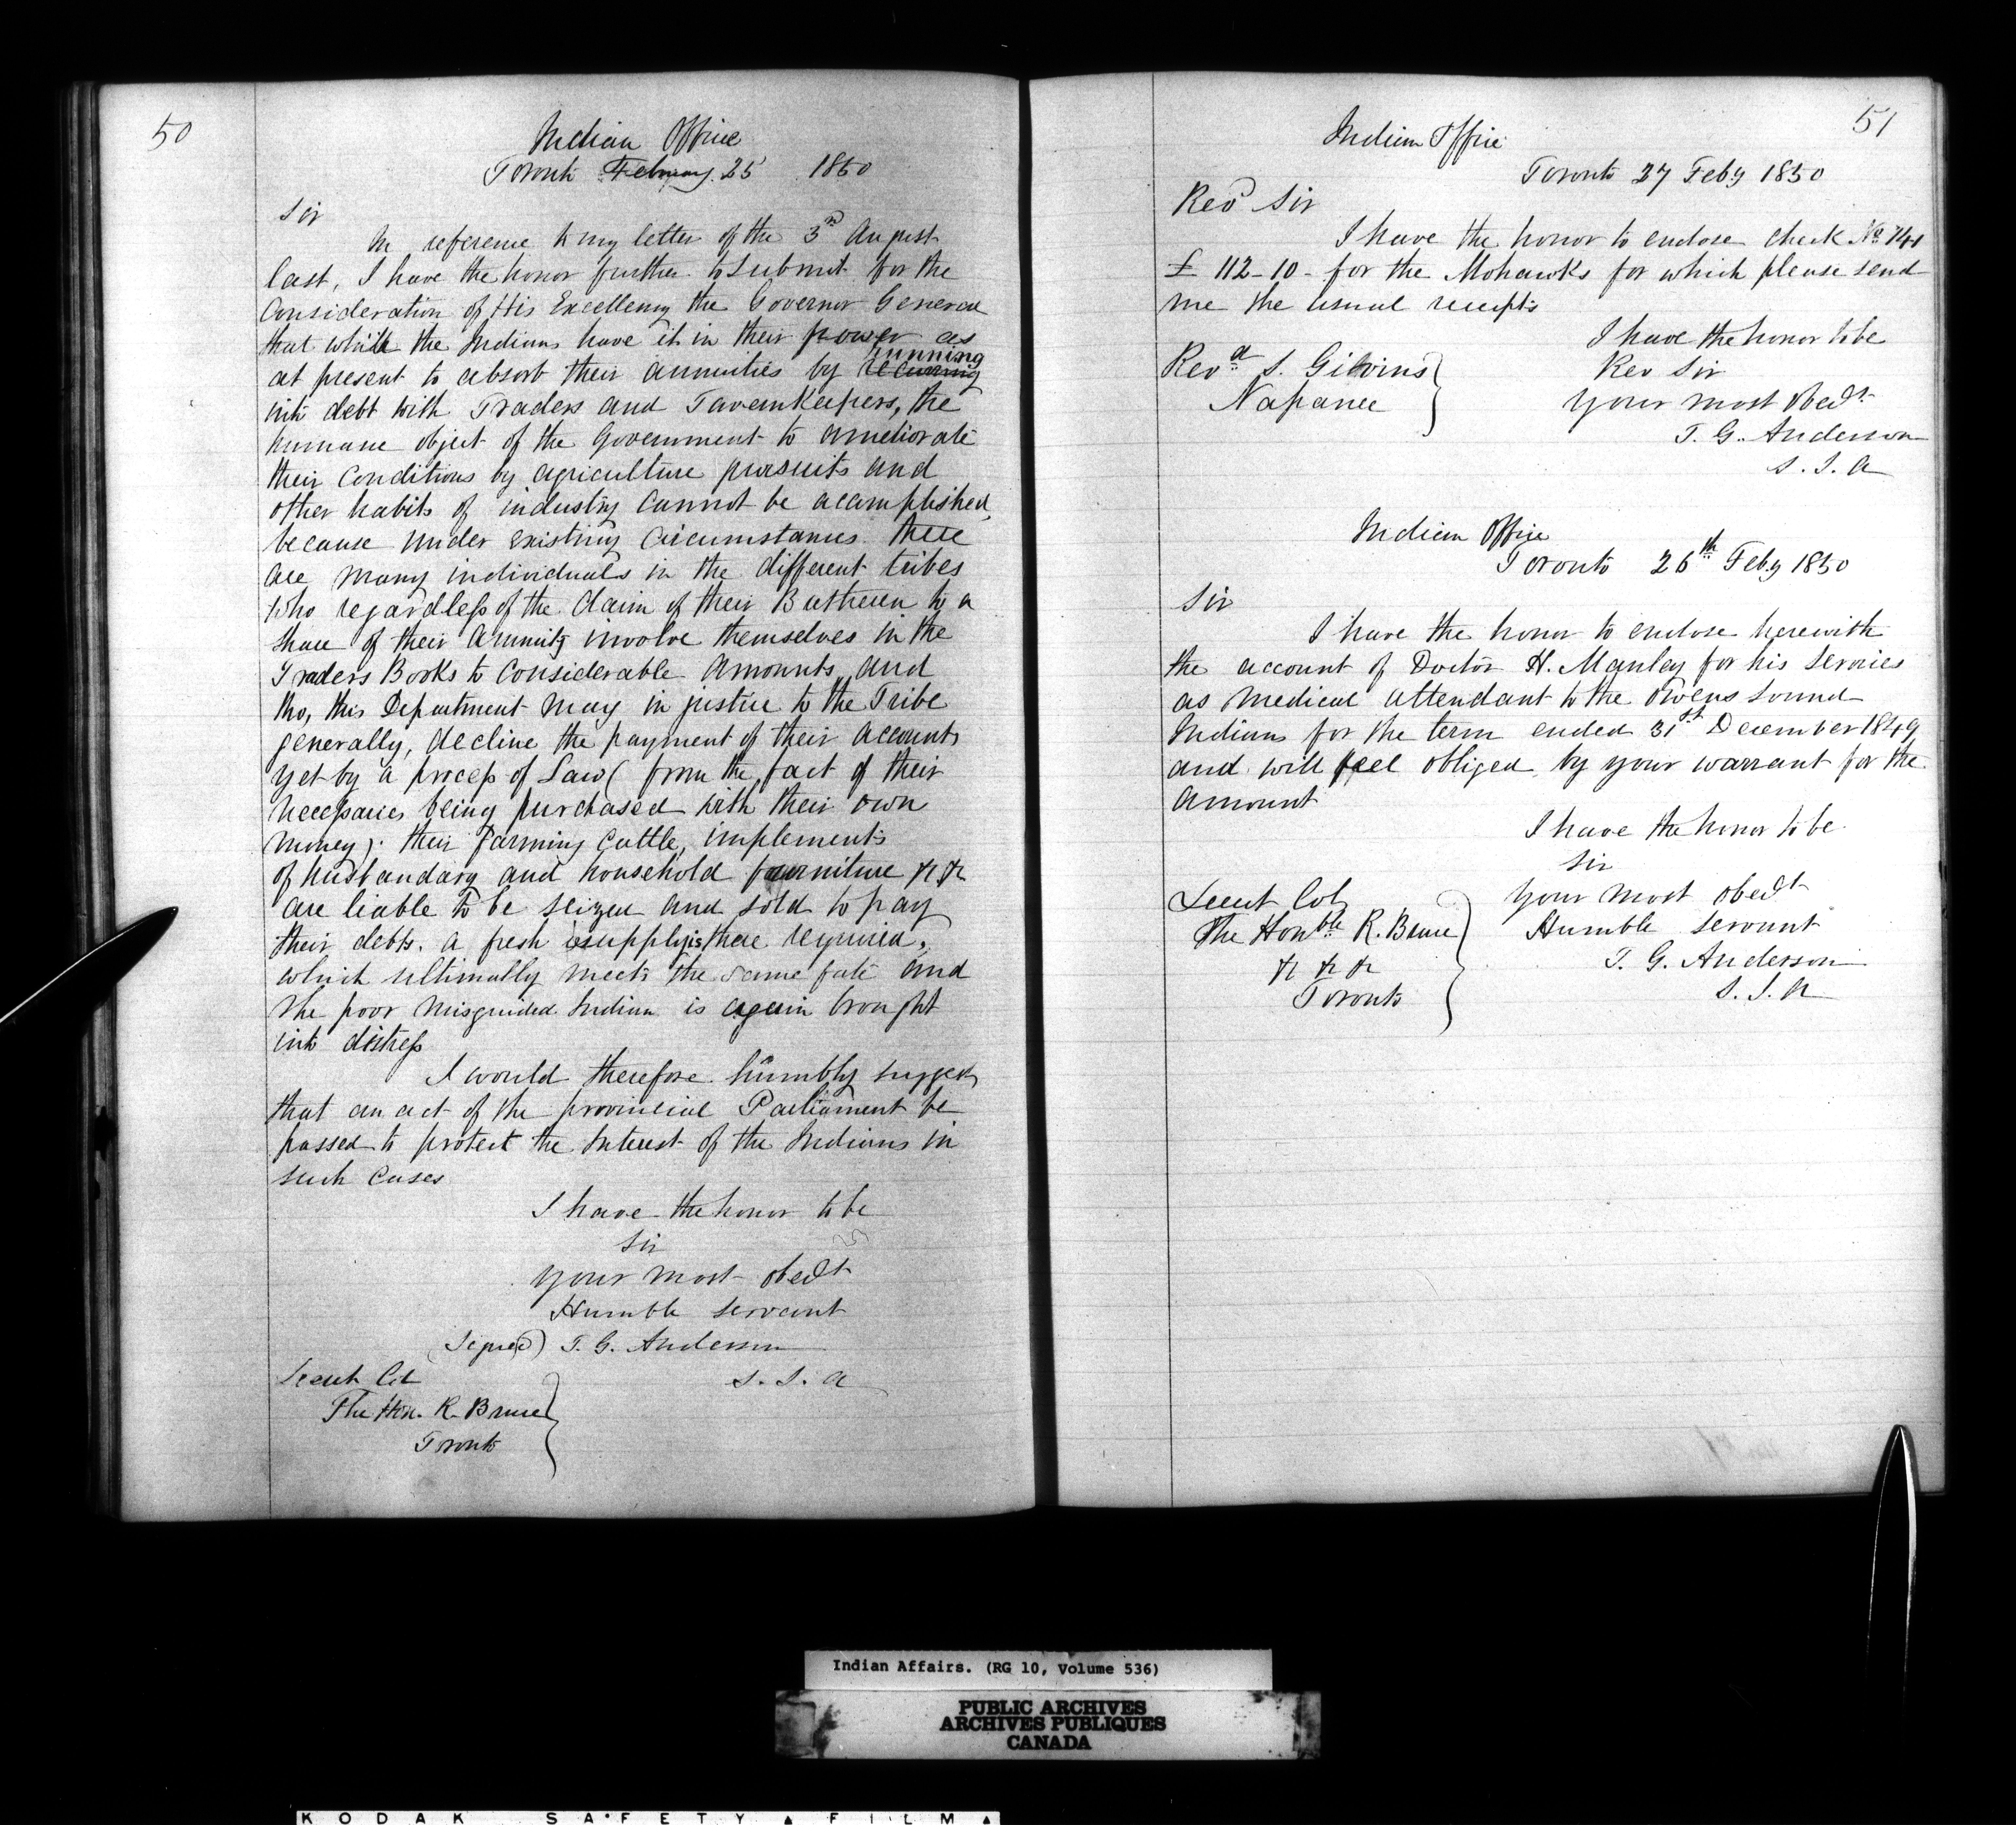 50
Indian Office
Toronto February 25 1850
Sir
In reference to my letter of the 3rd August
last, I have the honor further to submit for the
Consideration of His Excellency the Governor General
that while the Indians have it in their power as
at present to absorb their annuities by running
into debt with Traders and Tavernkeepers, the
humane object of the Government to ameliorate
their Conditions by agriculture pursuits and
other habits of industry cannot be acamplished,
because under existing Circumstances there
are many individuals in the different tribes
who regardless of the Claim of their Bretheren to a
share of their Annuity involve themselves in the
Traders Books to Considerable Amounts, and
tho, this Department may in justice to the Tribe
generally, decline the payment of their accounts
yet by a process of Law (from the fact of their
necessaries being purchased with their own
money). their farming Cattle, implements
of husbandary and household fourniture &c &c
are liable to be seized and sold to pay
their debts. a fresh supply is there required,
which ultimally meets the same fate and
the poor misguided Indian is again brought
into distress
I would therefore humbly suggest
that an act of the provincial Parliament be
passed to protect the Interest of the Indians in
such Cases
I have the honor to be
Sir
your most obedt
Humble servant
(Signed) T. G. Anderson
S. I. A
Lieut Col
The Hon. R. Bruce
Toronto
51
Indian Office
Toronto 27 Feby 1850
Revd Sir
I have the honor to enclose check No 741
£ 112-10- for the Mohawks for which please send
me the usual receipts
I have the honor to be
Rev Sir
your most obedt
T. G. Anderson
S. I. A
Revd S. Givins
Napanee
Indian Office
Toronto 26th Feby 1850
Sir
I have the honor to enclose herewith
the account of Doctor H. Manley for his services
as Medical attendant to the Owens Sound
Indians for the term ended 31st December 1849
and will feel obliged by your warrant for the
amount
I have the honor to be
Sir
your most obedt
Humble servant
T. G. Anderson
S. I. A
Lieut Col
The Honble R. Bruce
&c &c &c
Toronto
Indian Affairs. (RG 10, Volume 536)
PUBLIC ARCHIVES
ARCHIVES PUBLIQUES
CANADA
KODAK SAFETY FILM